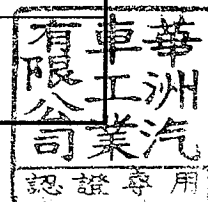 華洲汽
車工業
有限公司
認證專用